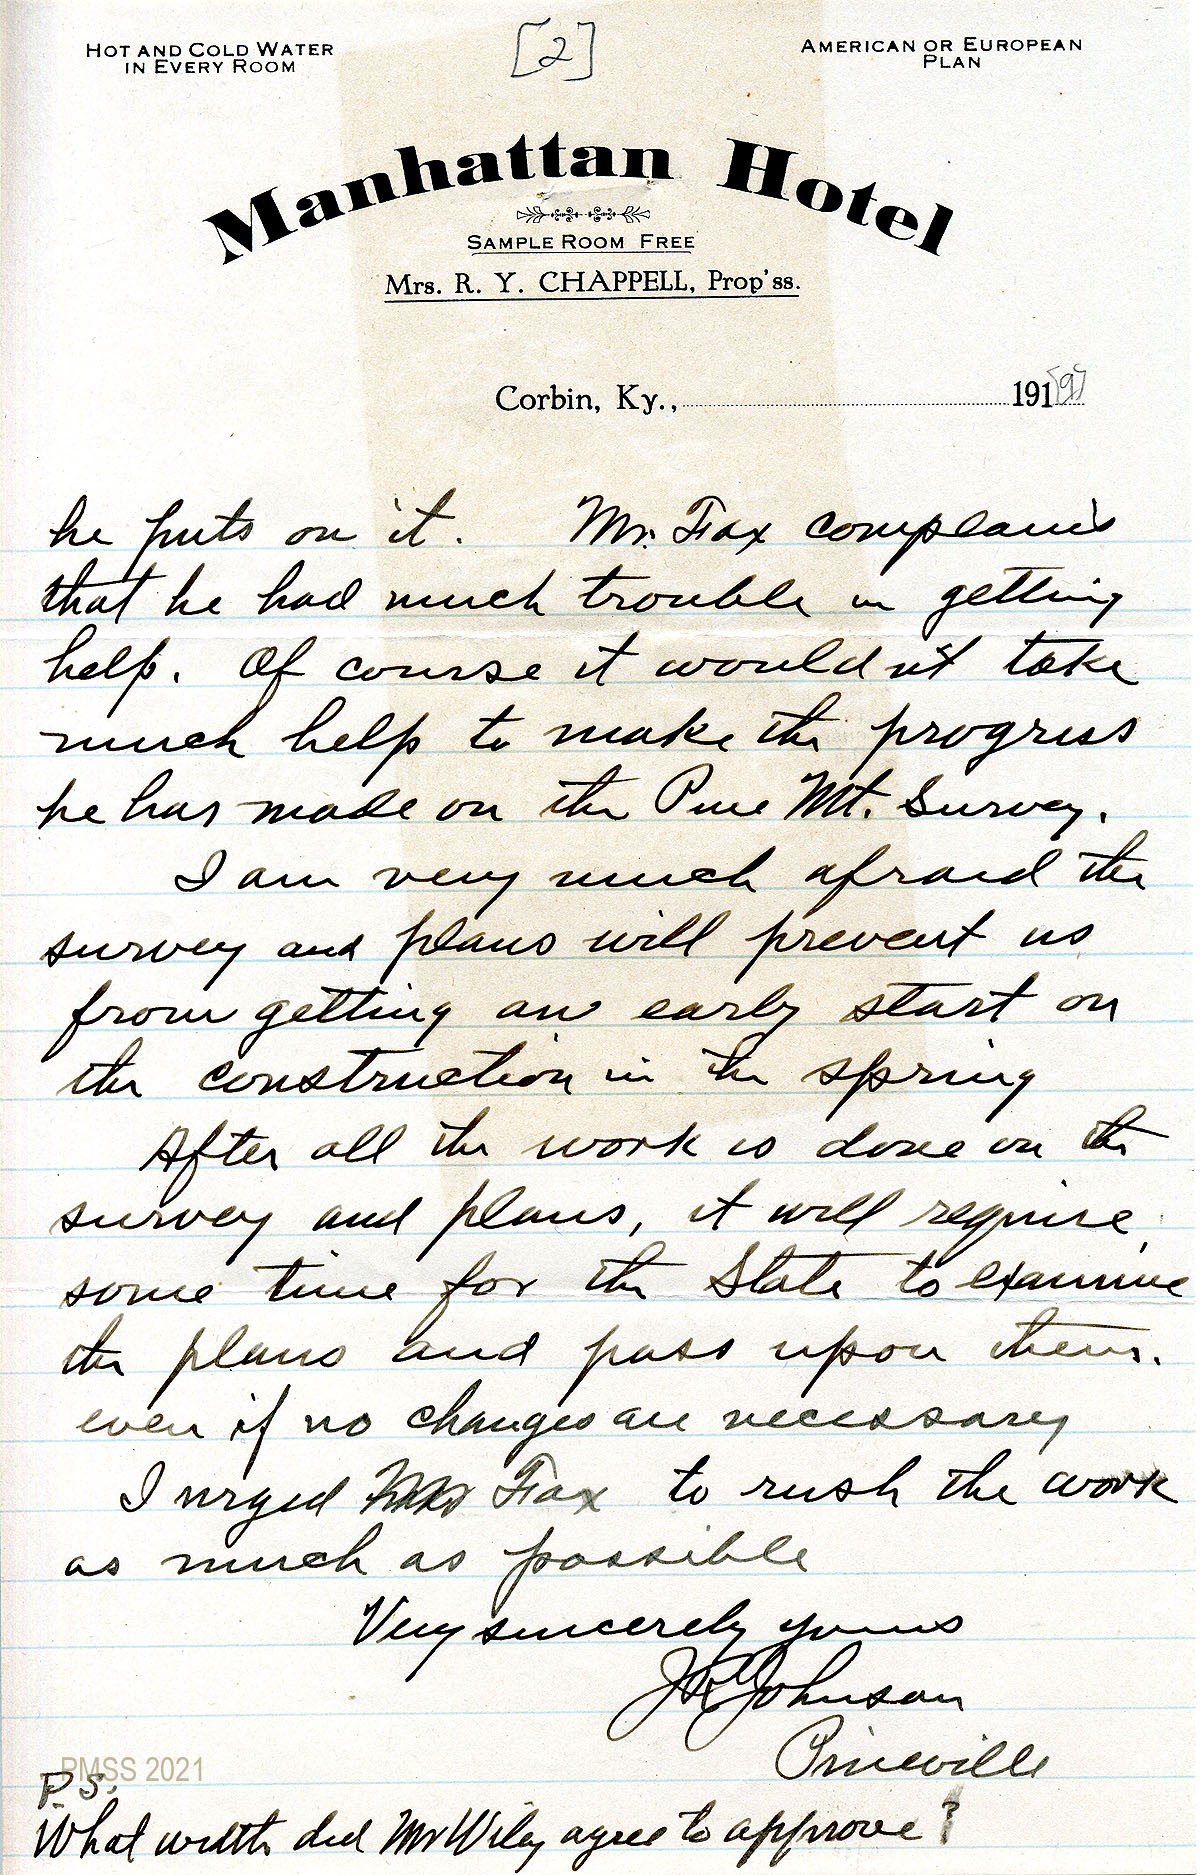 HOT AND COLD WATER
IN EVERY ROOM
[2]
AMERICAN OR EUROPEAN
PLAN
Manhattan Hotel
SAMPLE ROOM FREE
Mrs. R. Y. CHAPPELL, Prop'ss.
Corbin, Ky., 191[9]
he puts on it. Mr. Fax complains
that he had much trouble in getting
help. Of course it wouldn't take
much help to make the progress
he has made on the Pine Mt. Survey.
I am very much afraid the
survey and plans will prevent us
from getting an early start on
the construction in the spring
After all the work is done on the
survey and plans, it will require
some time for the State to examine
the plans and pass upon them.
even if no changes are necessary
I urged Fax to rush the work
as much as possible
Very sincerely yours
Johnson
Pineville
PMSS 2021
P.S.
What width did Mr Wiley agree to approve?